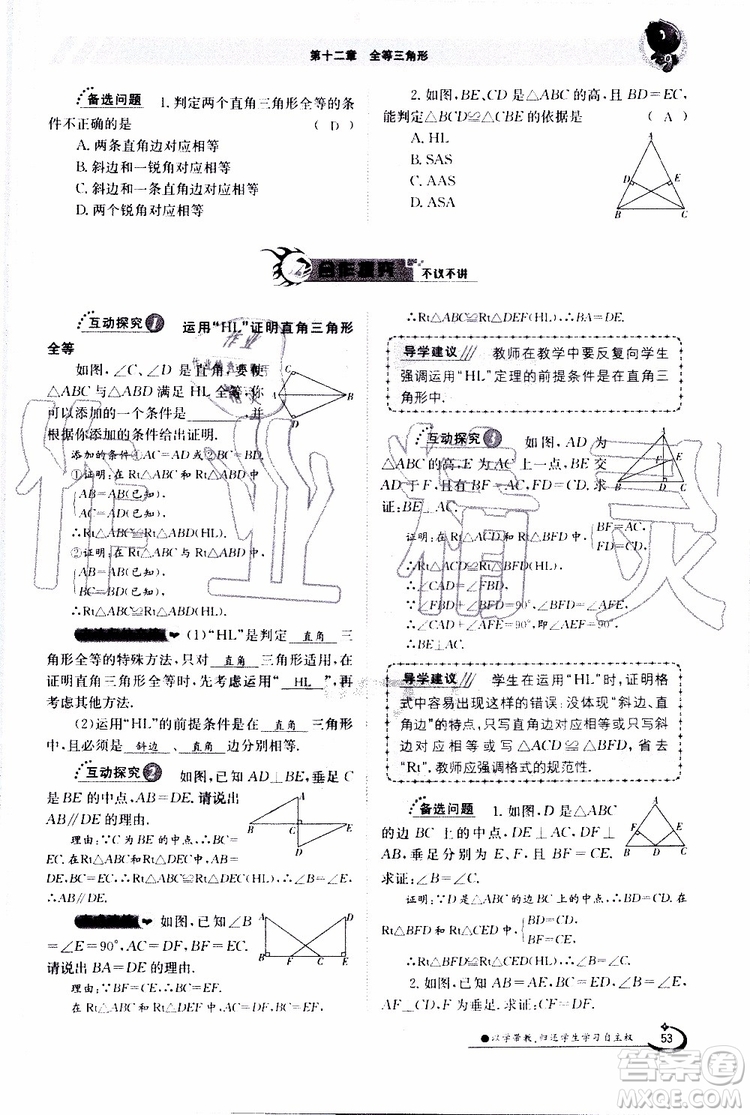 第十二章 全等三角形
备选问题 1. 判定两个直角三角形全等的条
件不正确的是 ( D )
A. 两条直角边对应相等
B. 斜边和一锐角对应相等
C. 斜边和一条直角边对应相等
D. 两个锐角对应相等
2. 如图,BE、CD 是△ABC 的高,且 BD=EC,
能判定△BCD≌△CBE 的依据是 ( A )
A. HL
B. SAS
C. AAS
D. ASA
A
D E
B C
不议不讲
互动探究 1 运用“HL”证明直角三角形
全等
如图,∠C、∠D 是直角,要使
△ABC 与△ABD 满足 HL 全等,你
可以添加的一个条件是 ,并
根据你添加的条件给出证明.
添加的条件①AC=AD或②BC=BD.
①证明:在 Rt△ABC 和 Rt△ABD 中
AB=AB(已知),
AC=AD(已知),
∴Rt△ABC≌Rt△ABD(HL).
②证明:在 Rt△ABC 和 Rt△ABD 中
AB=AB(已知),
BC=BD(已知),
∴Rt△ABC≌Rt△ABD(HL).
(1)“HL”是判定 直角 三
角形全等的特殊方法,只对 直角 三角形适用,在
证明直角三角形全等时,要灵活应用“ HL ”,再
想其他方法.
(2)运用“HL”的前提条件是在 直角 三角形
中,且必须是 斜边 、 直角 边分别相等.
互动探究 2 如图,已知 AD⊥BE,垂足 C
是 BE 的中点,AB=DE. 请说出
AB∥DE 的理由.
理由:∵C 为 BE 的中点,∴BC=
EC. 在 Rt△ABC 和 Rt△DEC 中,
AB=DE,BC=EC,∴Rt△ABC≌Rt△DEC(HL).
∴∠B=∠E. ∴AB∥DE.
如图,已知∠B
=∠E=90°,AC=DF,BF=EC.
请说出 BA=DE 的理由.
理由:∵BF=CE,∴BC=EF.
在 Rt△ABC 和 Rt△DEF 中,AC=DF,BC=EF,
A
B E
D
A D
B F C E
∴Rt△ABC≌Rt△DEF(HL). ∴BA=DE.
导学建议 教师在教学中要反复向学生
强调运用“HL”定理的前提条件是在直角三
角形中.
互动探究 3 如图,AD 为
△ABC 的高,E 为 AC 上一点,BE 交
AD 于 F,且有 BF=AC,FD=CD. 求
证:BE⊥AC.
证明:在 Rt△ACD 和 Rt△BFD 中,
BF=AC,
FD=CD.
∴Rt△ACD≌Rt△BFD(HL).
∴∠CAD=∠FBD,
∵∠FBD+∠BFD=90°,∠BFD=∠AFE,
∴∠CAD+∠AFE=90°,∴∠AEF=90°,
∴BE⊥AC.
导学建议 学生在运用“HL”时,证明格
式中容易出现这样的错误:没体现“斜边、直
角边”的特点,只写直角边对应相等或只写
斜边对应相等;写△ACD≌△BFD,省去
“Rt”. 教师应强调格式的规范性.
备选问题 1. 如图,D 是△ABC
的边 BC 上的中点,DE⊥AC,DF⊥
AB,垂足分别为 E,F,且 BF=CE.
求证:∠B=∠C.
证明:∵D 是△ABC 的边 BC 上的中点,∴BD=CD,在
Rt△BFD 和 Rt△CED 中
BD=CD,
BF=CE.
∴Rt△BFD≌Rt△CED(HL). ∴∠B=∠C.
2. 如图,已知∠B=∠E=90°,AB=AE,BC=
ED,AF⊥CD,F 为垂足. 求证:CF=DF.
A
F E
B D C
以学带教,归还学生学习自主权
53
作业精灵
答案圈
MXQE.COM